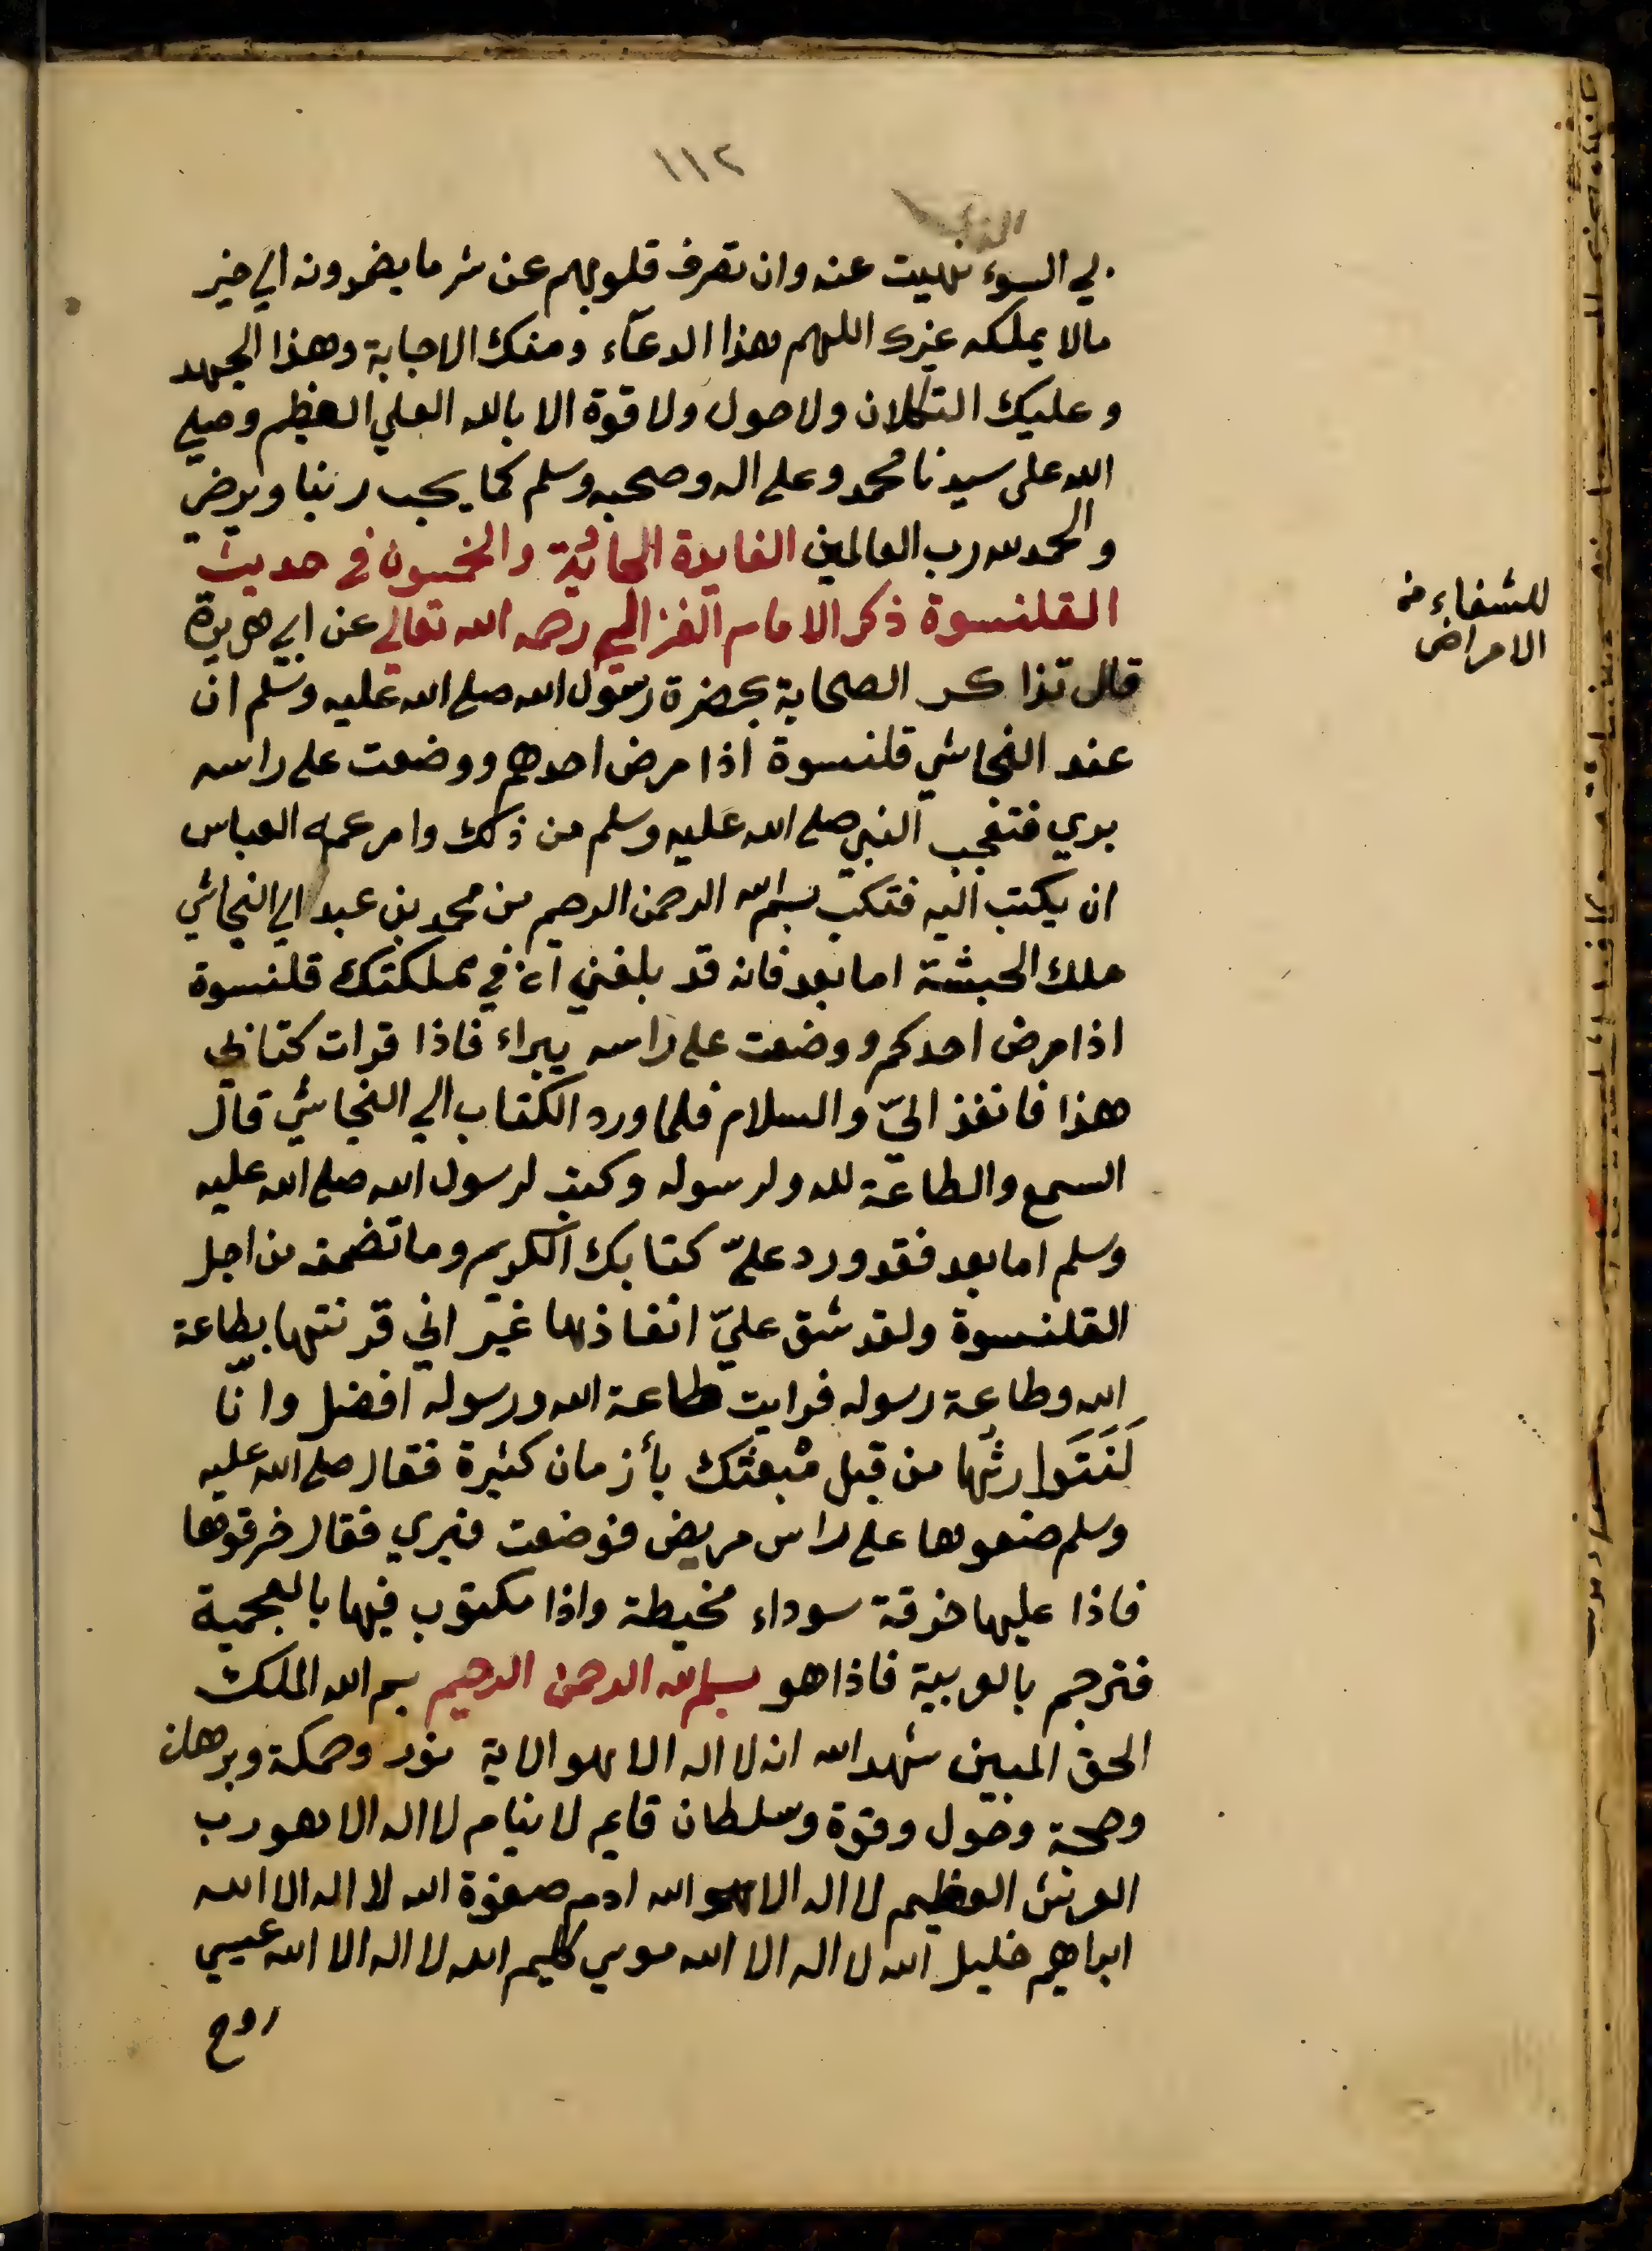 ١١٢
الذي
بي السوء نهيت عنه وان تصرف قلوبهم عن شر ما يضمرونه الي خير
مالا يملكه غيرك اللهم هذا الدعاء ومنك الاجابة وهذا الجهد
وعليك التكلان ولا حول ولا قوة الا بالله العلي العظيم وصلي
الله على سيدنا محمد وعلى اله وصحبه وسلم كما يحب ربنا ويرضى
والحمد لله رب العالمين الفايدة الحادية والخمسون في حديث
القلنسوة ذكر الامام الغزالي رحمه الله تعالي عن ابي هريرة
قال تذاكر الصحابة بحضرة رسول الله صلى الله عليه وسلم ان
عند النجاشي قلنسوة اذا مرض احدهم ووضعت على راسه
بري فتعجب النبي صلى الله عليه وسلم من ذلك وامر عمه العباس
ان يكتب اليه فتكب بسم الله الرحمن الرحيم من محمد بن عبد الي النجاشي
ملك الحبشة اما بعد فانه قد بلغني ان في مملكتك قلنسوة
اذا مرض احدكم ووضعت على راسه يبراء فاذا قرات كتابي
هذا فانفذ اليّ والسلام فلما ورد الكتاب الي النجاشي قال
السمع والطاعة لله ولرسوله وكتب لرسول الله صلى الله عليه
وسلم اما بعد فقد ورد عليّ كتابك الكريم وما تضمنه من اجل
القلنسوة ولقد شق عليّ انفاذها غير اني قرنتها بطاعة
الله وطاعة رسوله فرايت طاعة الله ورسوله افضل وانّا
لَنَتَوارثُها من قبل مْبعثك بأزمان كثيرة فقال صلى الله عليه
وسلم ضعوها على راس مريض فوضعت فبري فقال خرقوها
فاذا عليها خرقة سوداء مخيطة واذا مكتوب فيها بالعجمية
فترجم بالعربية فاذا هو بسم الله الرحمن الرحيم بسم الله الملك
الحق المبين شهد الله انه لا اله الا هو الاية نور وحكمة وبرهان
وحول وقوة وسلطان قايم لا ينام لا اله الا هو رب
العرش العظيم لا اله الا هو الله ادم صفوة الله لا اله الا الله
ابراهيم خليل الله لا اله الا الله موسي كليم الله لا اله الا الله عيسي
روح
للشفاء من
الامراض